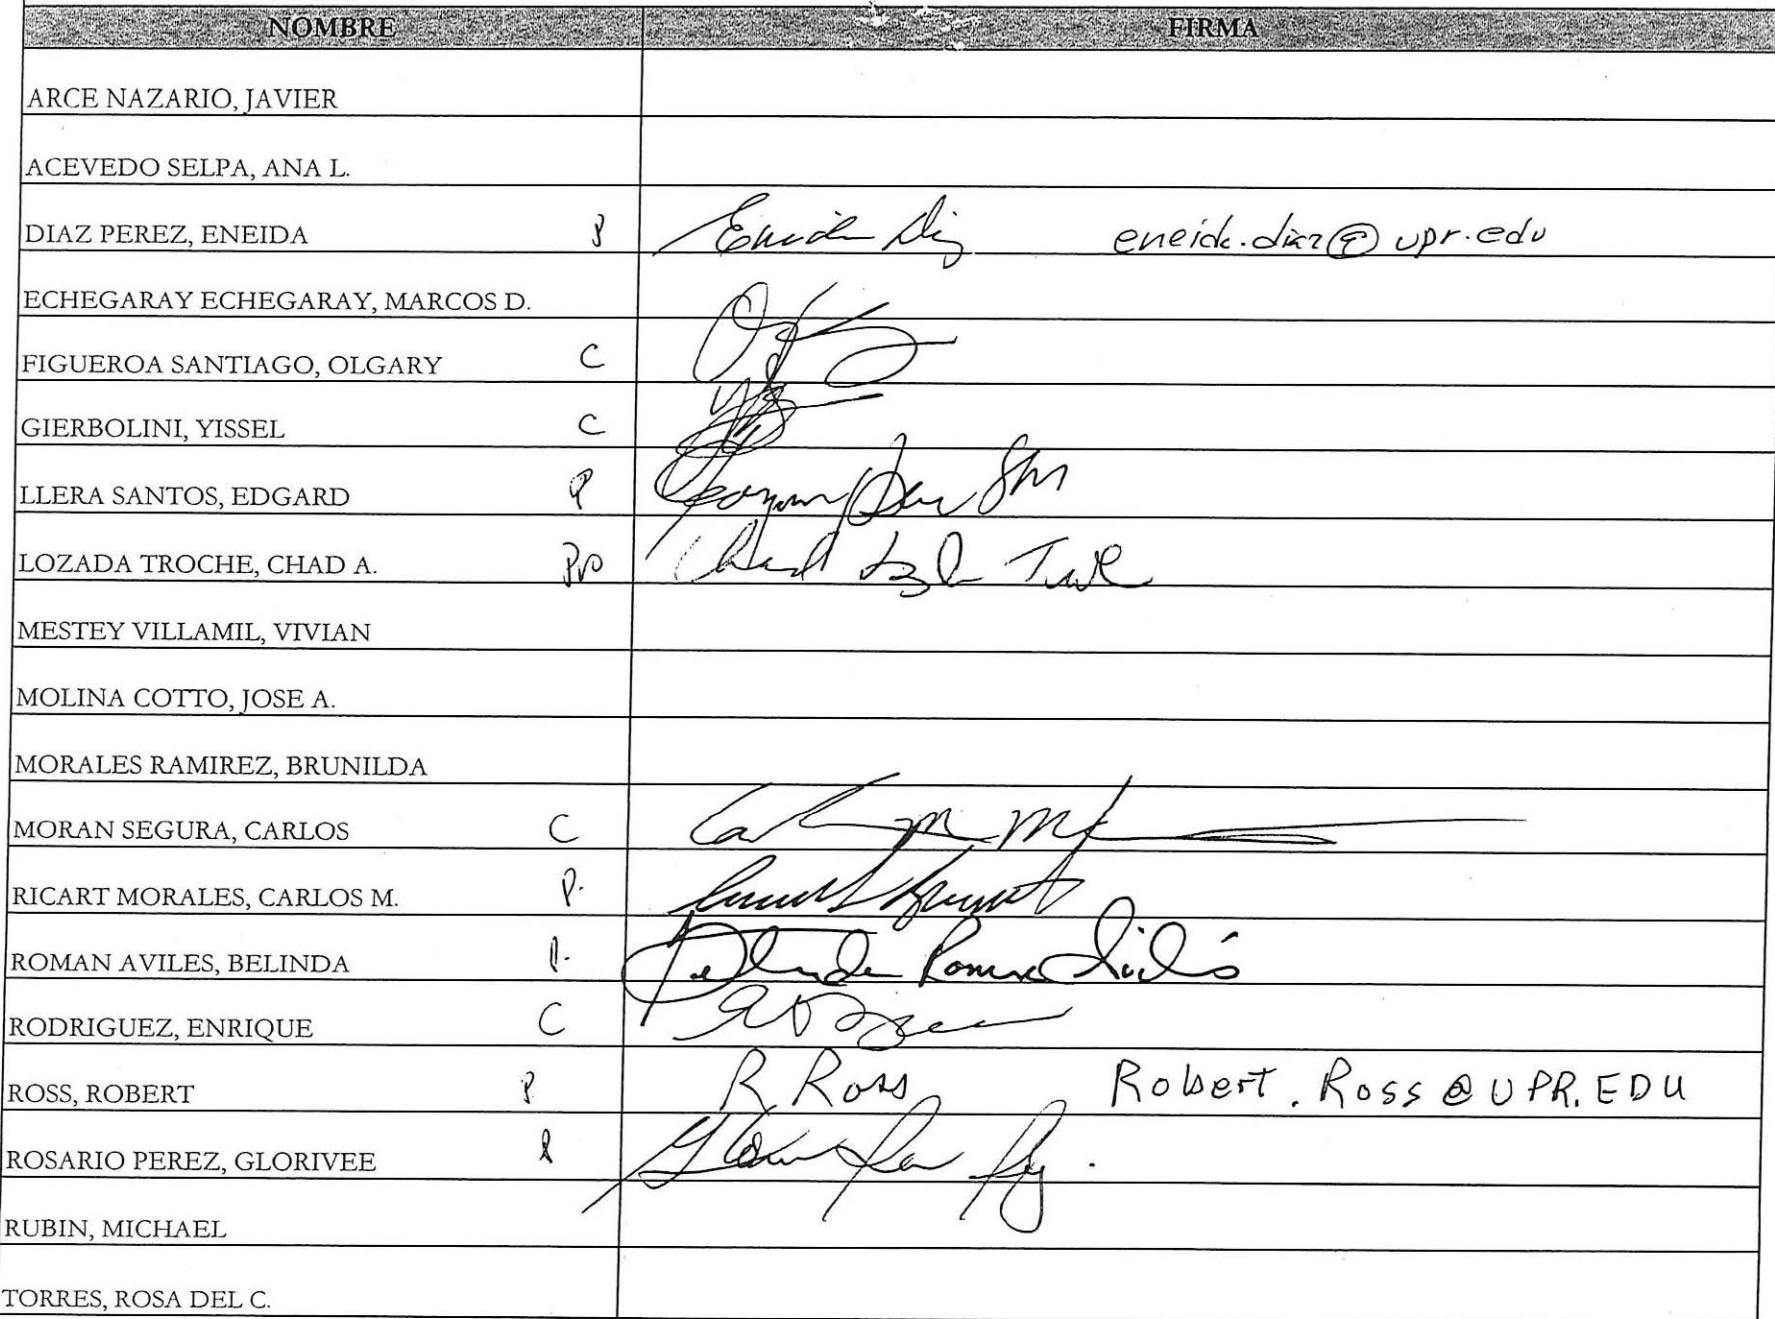 NOMBRE FIRMA
ARCE NAZARIO, JAVIER
ACEVEDO SELPA, ANA L.
DIAZ PEREZ, ENEIDA P Eneida Diaz eneida.diaz@upr.edu
ECHEGARAY ECHEGARAY, MARCOS D.
FIGUEROA SANTIAGO, OLGARY C
GIERBOLINI, YISSEL C
LLERA SANTOS, EDGARD P
LOZADA TROCHE, CHAD A. Chad
MESTEY VILLAMIL, VIVIAN
MOLINA COTTO, JOSE A.
MORALES RAMIREZ, BRUNILDA
MORAN SEGURA, CARLOS C
RICART MORALES, CARLOS M. P.
ROMAN AVILES, BELINDA Belinda Roman Avilés
RODRIGUEZ, ENRIQUE C
ROSS, ROBERT P R Ross Robert.Ross@UPR.EDU
ROSARIO PEREZ, GLORIVEE
RUBIN, MICHAEL
TORRES, ROSA DEL C.